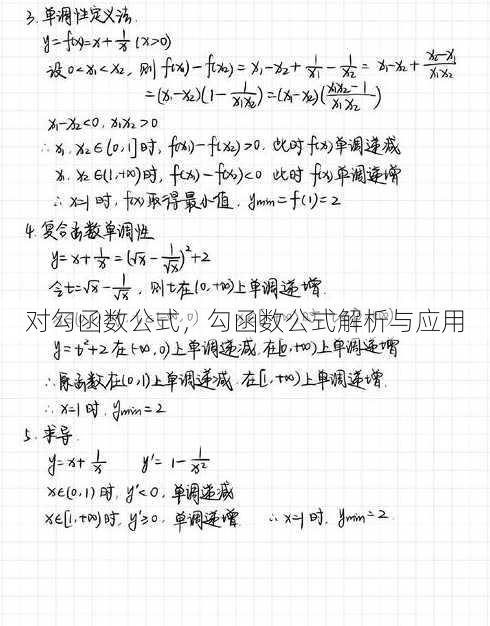 3. 单调性定义法.
y=f(x)=x+1/x (x>0)
设0<x₁<x₂, 则f(x₁)-f(x₂)=x₁-x₂+1/x₁-1/x₂=x₁-x₂+(x₂-x₁)/(x₁x₂)
=(x₁-x₂)(1-1/(x₁x₂))=(x₁-x₂)((x₁x₂-1)/(x₁x₂))
x₁-x₂<0, x₁x₂>0
∴x₁, x₂∈(0,1]时, f(x₁)-f(x₂)>0. 此时f(x)单调递减
x₁, x₂∈(1,+∞)时, f(x₁)-f(x₂)<0 此时f(x)单调递增
∴x=1时, f(x)取得最小值, ymin=f(1)=2
4. 复合函数单调性
y=x+1/x=(√x-1/√x)²+2
令t=√x-1/√x, 则t在(0,+∞)上单调递增.
对勾函数公式，勾函数公式解析与应用
y=t²+2在(-∞,0)上单调递减,在[0,+∞)上单调递增
∴原函数在(0,1)上单调递减 在[1,+∞)上单调递增.
∴x=1时, ymin=2
5. 求导.
y=x+1/x y'=1-1/x²
x∈(0,1)时, y'<0, 单调递减
x∈[1,+∞)时, y'≥0, 单调递增 ∴x=1时, ymin=2.